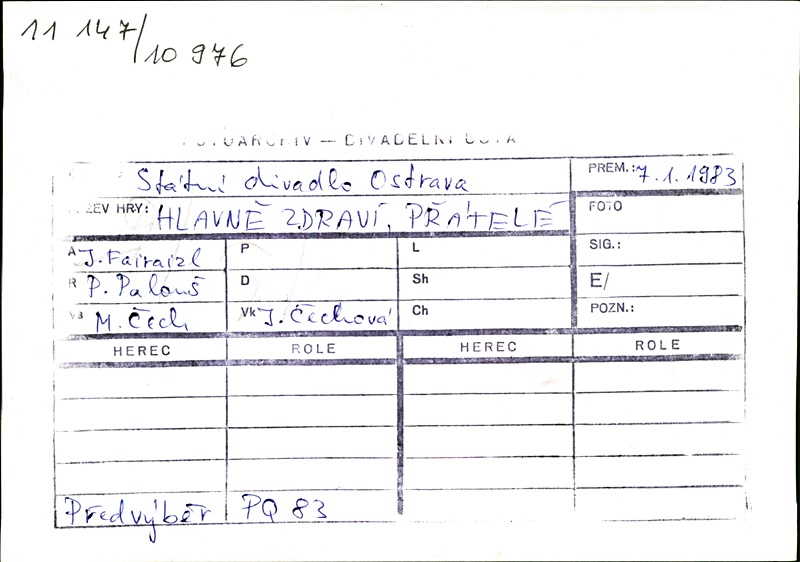 11 147/10 976
FOTOARCHIV — DIVADELNÍ
Státní divadlo Ostrava PREM.: 7. 1. 1983
ZEV HRY: HLAVNĚ ZDRAVÍ, PŘÁTELÉ FOTO
A J. Fairaizl P L SIG.:
R P. Palouš D Sh E/
M. Čech Vk J. Čechová Ch POZN.:
HEREC ROLE HEREC ROLE
Předvýběr PQ 83